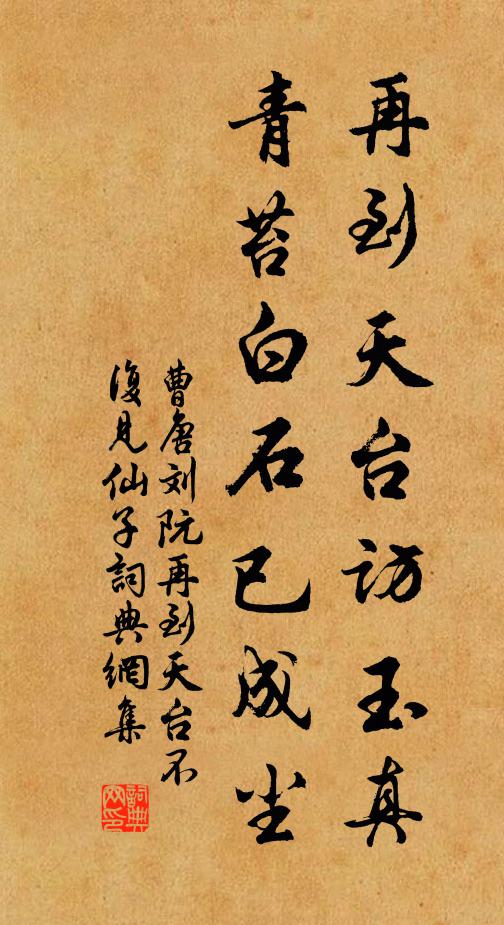 再到天台访玉真
青苔白石已成尘
曹唐刘阮再到天台不
復見仙子詞典網集
詞典网印